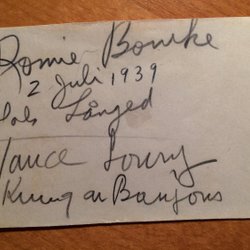 Romie Bourke
2 Juli 1939
Dals Långed
Vance Lowry
Kung av Banjons